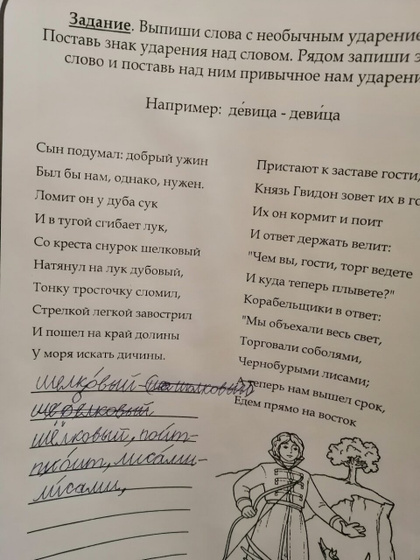 Задание. Выпиши слова с необычным ударение
Поставь знак ударения над словом. Рядом запиши э
слово и поставь над ним привычное нам ударени
Например: де́вица - деви́ца
Сын подумал: добрый ужин
Был бы нам, однако, нужен.
Ломит он у дуба сук
И в тугой сгибает лук,
Со креста снурок шелковый
Натянул на лук дубовый,
Тонку тросточку сломил,
Стрелкой легкой завострил
И пошел на край долины
У моря искать дичины.
Пристают к заставе гости;
Князь Гвидон зовет их в го
Их он кормит и поит
И ответ держать велит:
"Чем вы, гости, торг ведете
И куда теперь плывете?"
Корабельщики в ответ:
"Мы объехали весь свет,
Торговали соболями,
Чернобурыми лисами;
А теперь нам вышел срок,
Едем прямо на восток
шелко́вый-
шёлковый, по́ит-
пои́т, лиса́ми-
ли́сами,